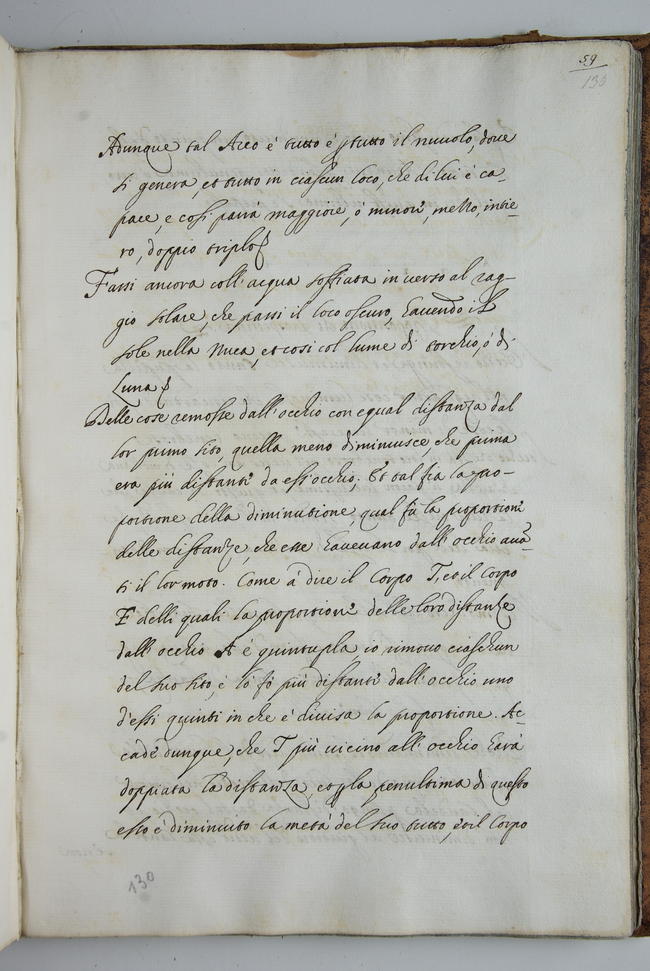 59
130
Adunque tal Arco è tutto è p tutto il nuuolo, doue
si genera, et tutto in ciascun loco, che di lui è ca-
pace, e cosi parrà maggiore, ó minore, mezzo, intie-
ro, doppio triplo
Farsi ancora coll'acqua soffiata in uerso al rag-
gio solare, che passi il loco oscuro, hauendo il
sole nella Nuca, et cosi col lume di torchio, ó di
Luna
Delle cose remosse dall'occhio con equal distanza dal
lor primo sito, quella meno diminuisce, che prima
era più distante da ess'occhio; Et tal fia la pro-
portione della diminutione, qual fù la proportione
delle distanze, che esse haueuano dall'occhio auã
ti il lor moto. Come à dire il Corpo T, et il Corpo
E delli quali la proportione delle loro distanze
dall'occhio A è quintupla, io rimouo ciaschun
del suo sito, è lo fò più distante dall'occhio uno
d'essi quinti in che è diuisa la proportione. Ac-
cade dunque, che T più uicino all'occhio harà
doppiata la distanza, et p la penultima di questo
esso è diminuito la metà del suo tutto, et il Corpo
130